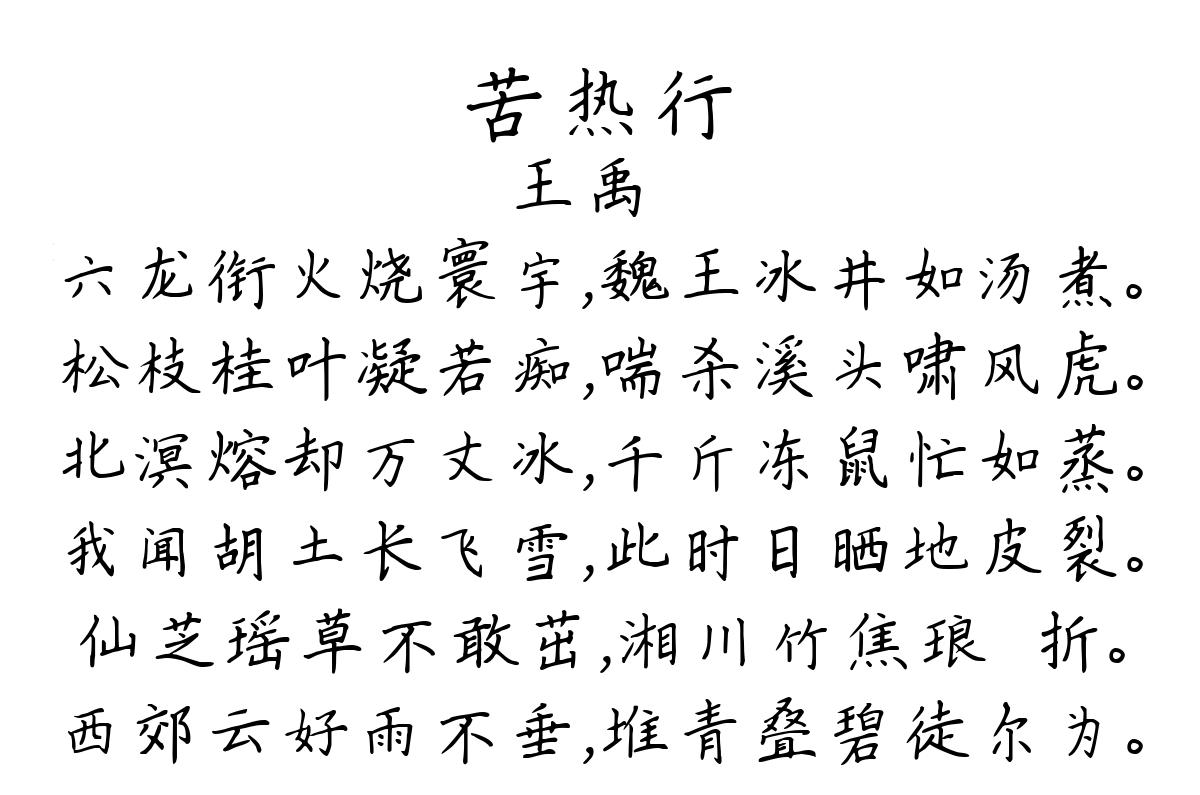 苦热行
王禹
六龙衔火烧寰宇,魏王冰井如汤煮。
松枝桂叶凝若痴,喘杀溪头啸风虎。
北溟熔却万丈冰,千斤冻鼠忙如蒸。
我闻胡土长飞雪,此时日晒地皮裂。
仙芝瑶草不敢茁,湘川竹焦琅 折。
西郊云好雨不垂,堆青叠碧徒尔为。